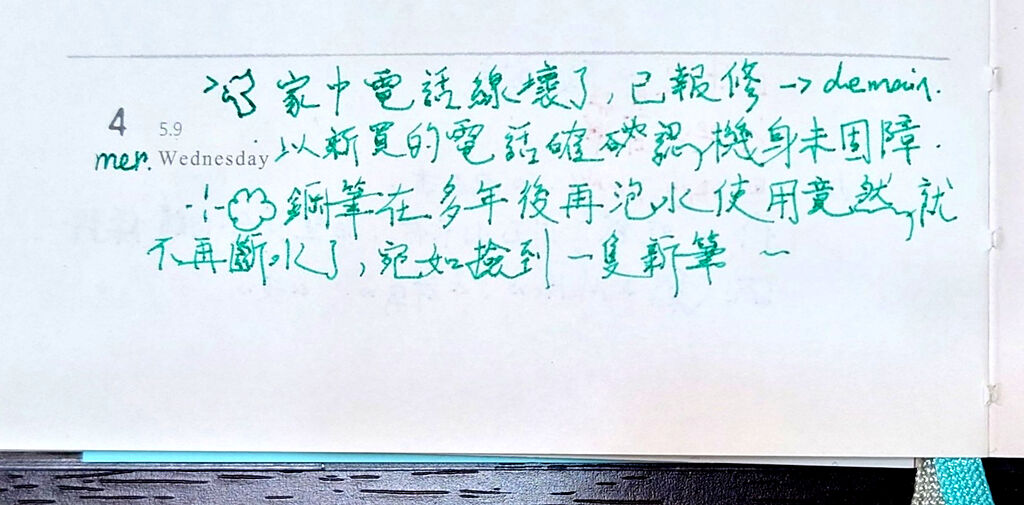 家中電話線壞了,已報修→demain.
4 5.9
mer. Wednesday 以新買的電話確認,機身未固障.
鋼筆在多年後再泡水使用竟然,就
不再斷水了,宛如撿到一隻新筆~